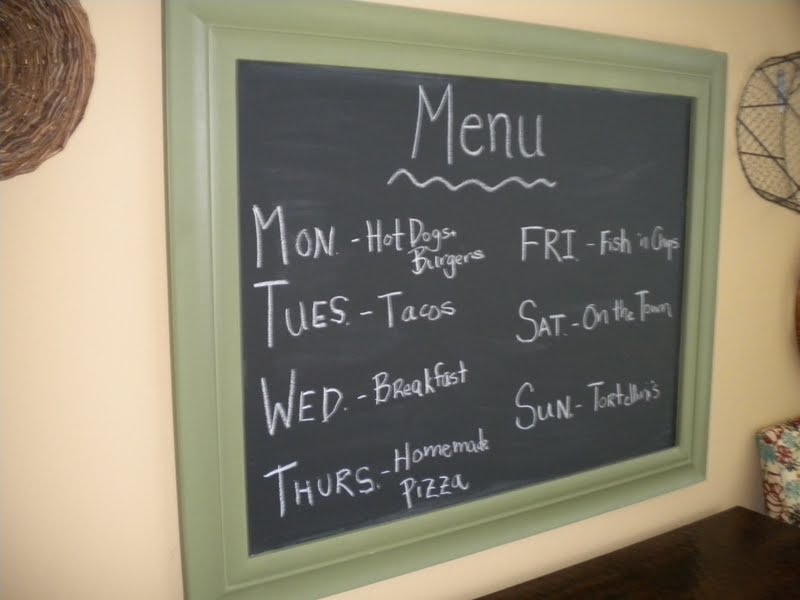 Menu
MON. - Hot Dogs +
Burgers
TUES. - Tacos
WED. - Breakfast
THURS. - Homemade
Pizza
FRI. - Fish 'n Chips
SAT. - On the Town
SUN. - Tortellini's